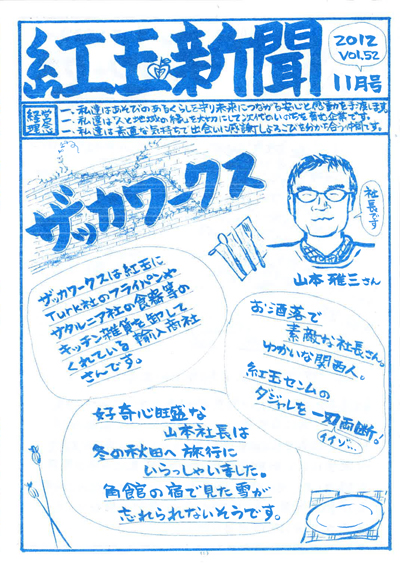 紅玉新聞
2012
VOL.52
11月号
経営理念
一、私達はあそびのあるくらしを守り未来につながる安心と感動を手渡します。
一、私達は人と地域の縁を大切にして次代のいのちを育む企業です。
一、私達は素直な気持ちで出合いに感謝しよろこびを分かち合う仲間です。
ザッカワークス
社長です
山本雅三さん
ザッカワークスは紅玉に
Turk社のフライパンや
サタルニア社の食器等の
キッチン雑貨を卸して
くれている輸入商社
さんです。
お洒落で
素敵な社長さん。
ゆかいな関西人。
紅玉センムの
ダジャレを一刀両断!
イイゾ…
好奇心旺盛な
山本社長は
冬の秋田へ旅行に
いらっしゃいました。
角館の宿で見た雪が
忘れられないそうです。